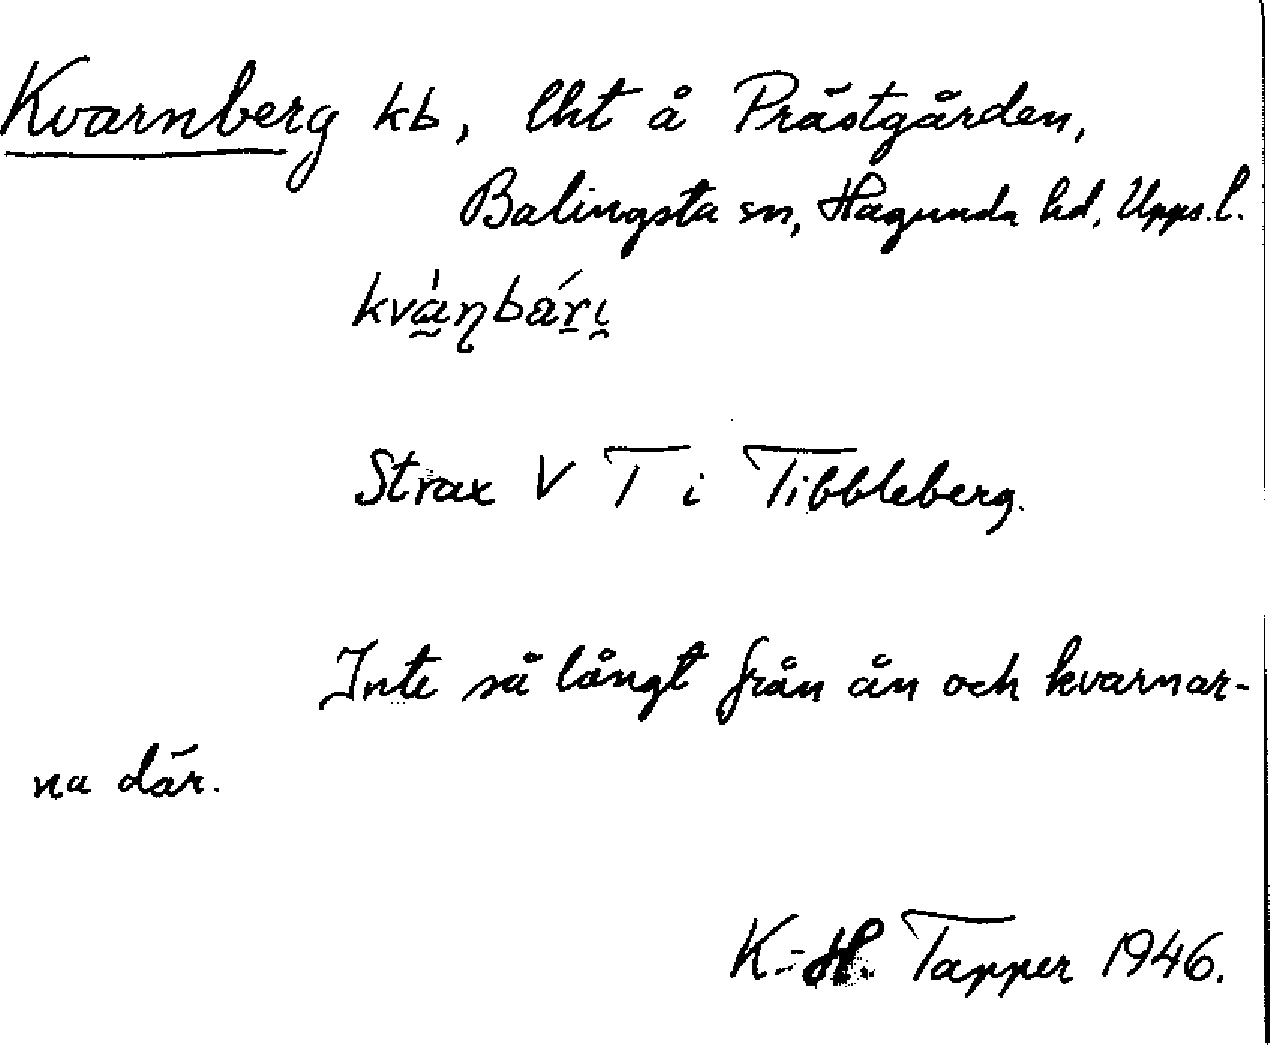 Kvarnberg kb, lht å Prästgården,
Balingsta sn, Hagunda hd, Upps.l.
kvà̰ɳbárı̯
Strax V T i Tibbleberg.
Inte så långt från ån och kvarnar-
na där.
K.-H. Tapper 1946.